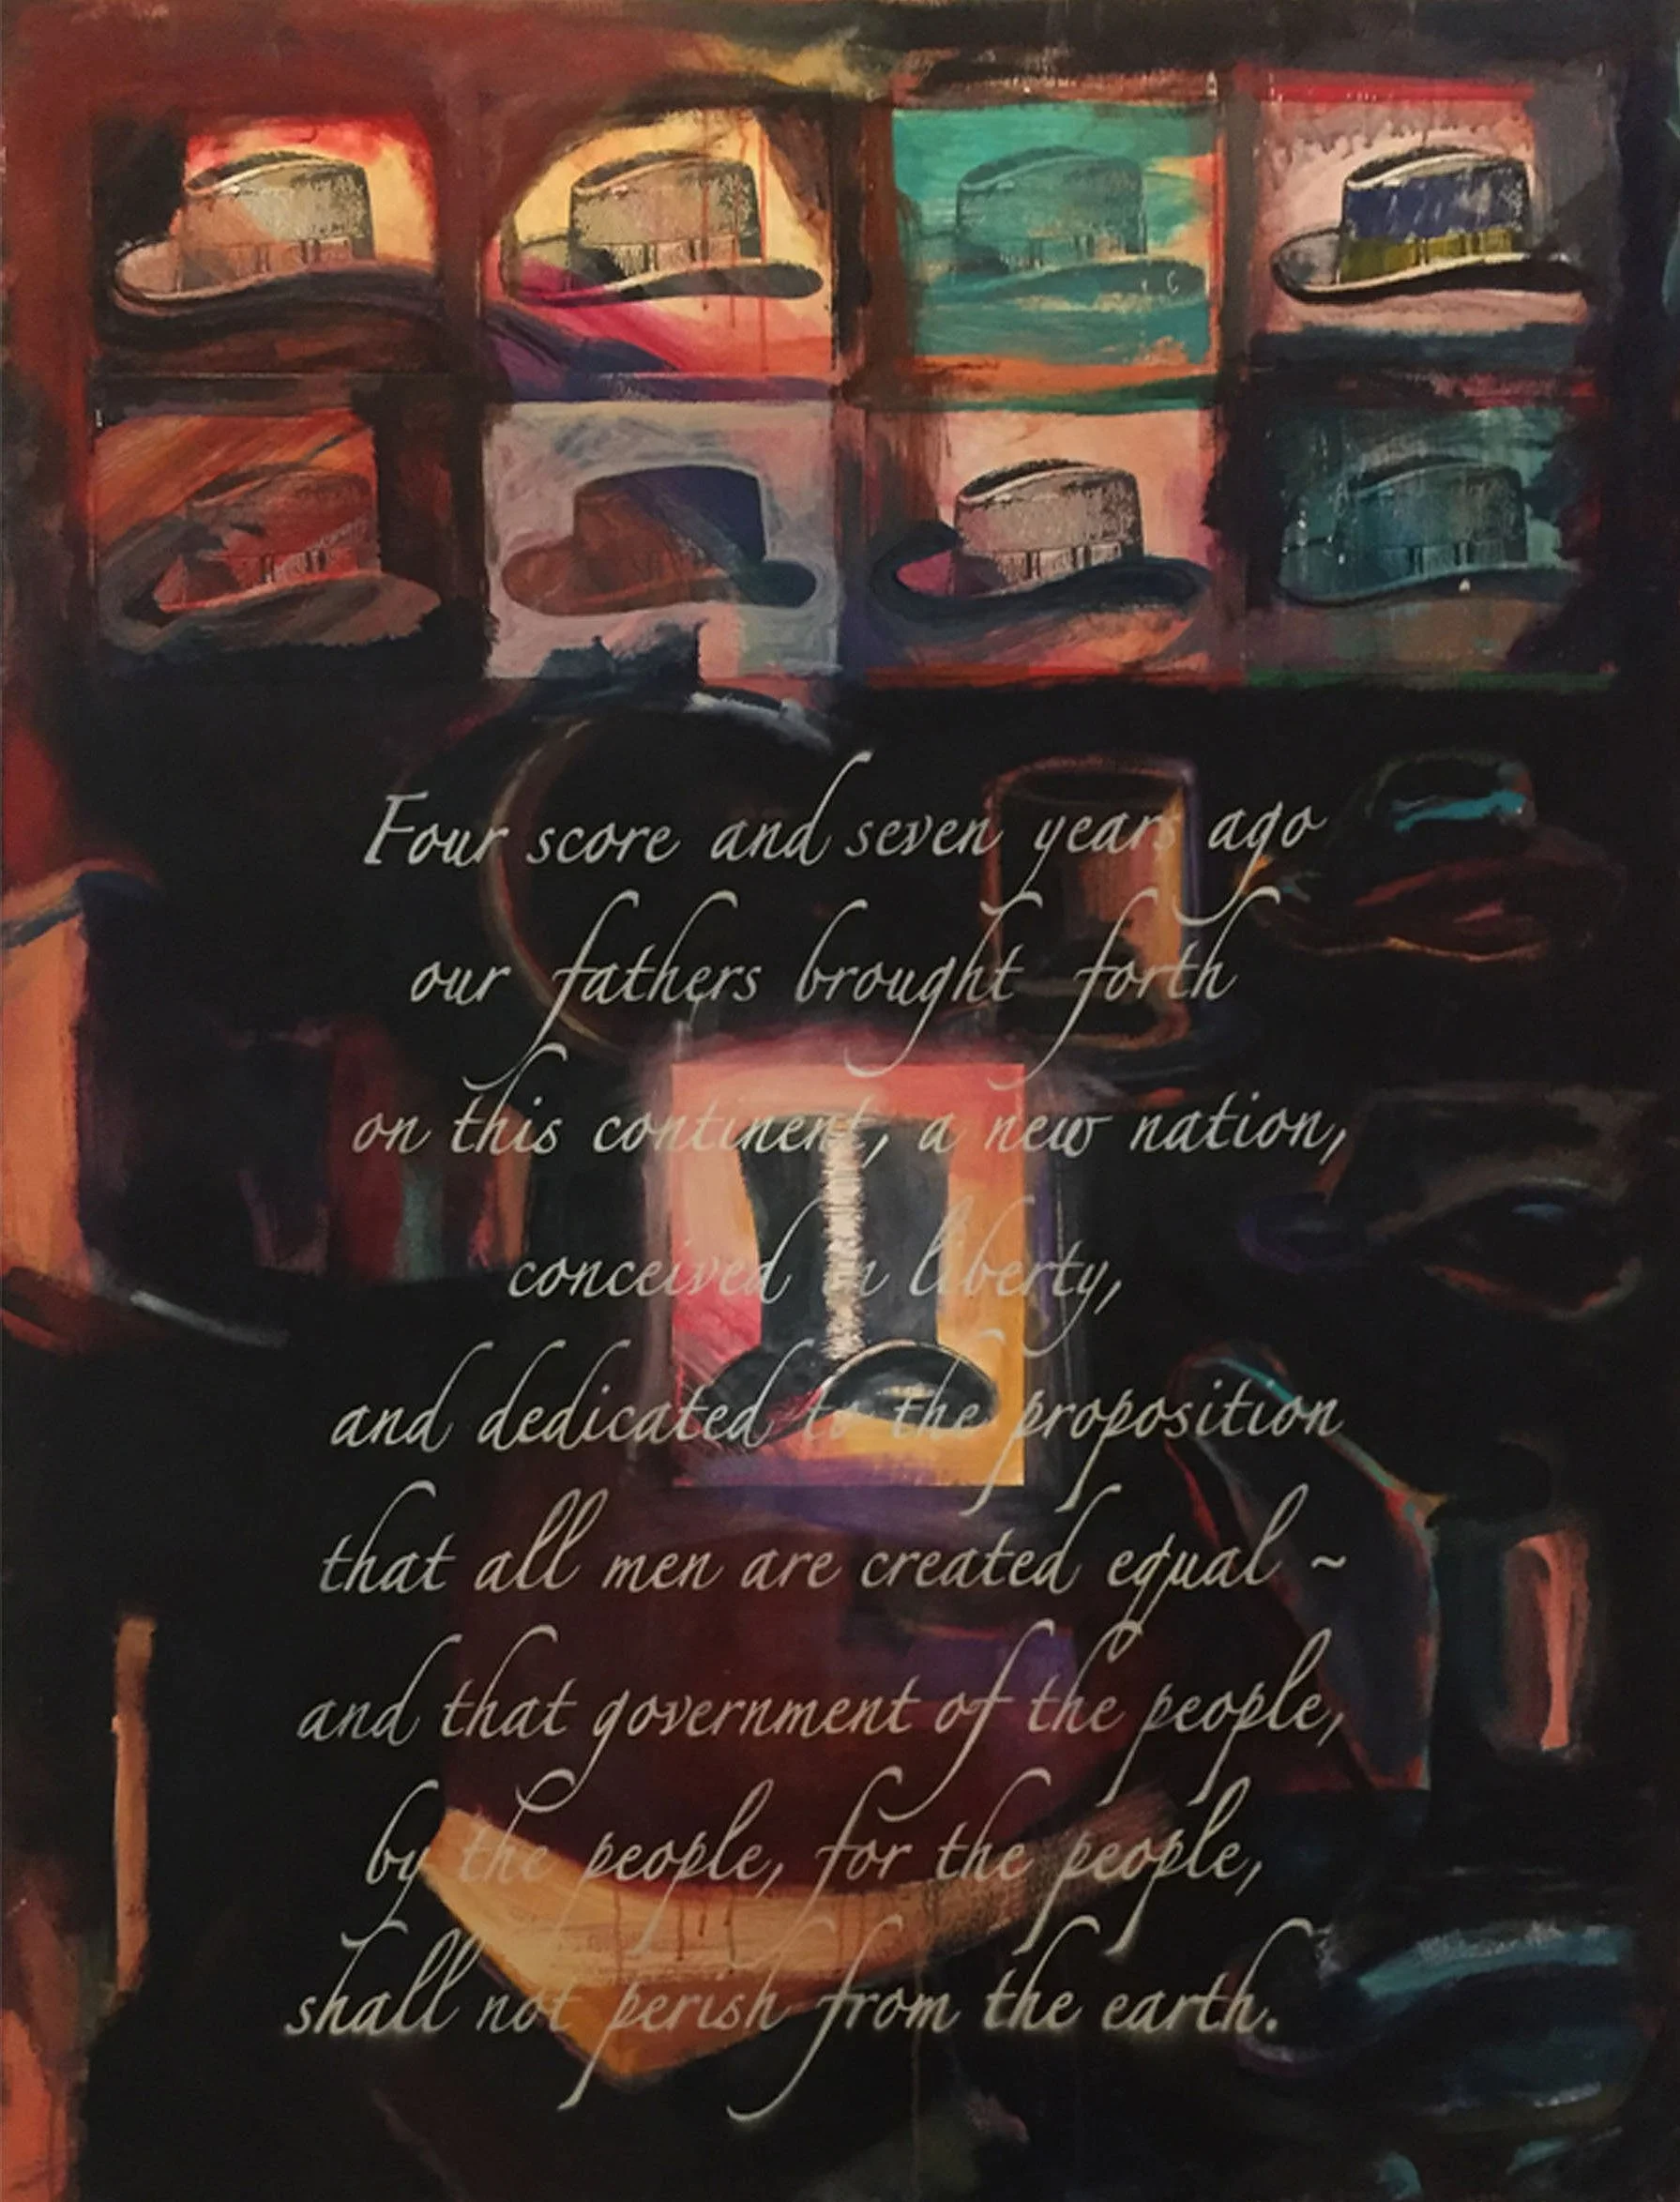 Four score and seven years ago
our fathers brought forth
on this continent, a new nation,
conceived in liberty,
and dedicated to the proposition
that all men are created equal ~
and that government of the people,
by the people, for the people,
shall not perish from the earth.